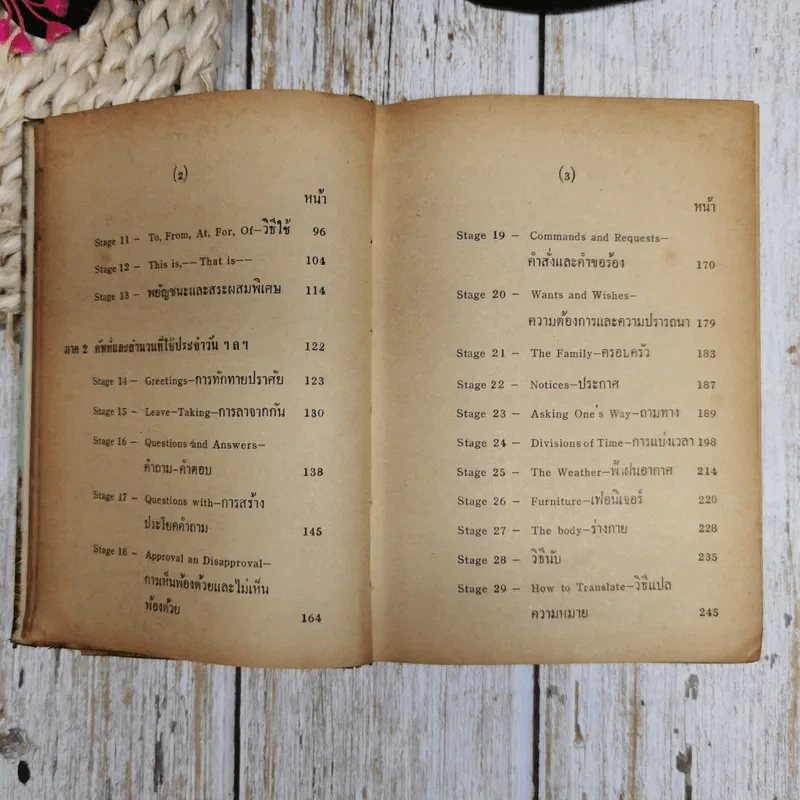 (2)
หน้า
Stage 11 – To, From, At, For, Of–วิธีใช้ 96
Stage 12 – This is,–– That is–– 104
Stage 13 – พยัญชนะและสระผสมพิเศษ 114
ภาค 2 ศัพท์และสำนวนที่ใช้ประจำวัน ฯลฯ 122
Stage 14 – Greetings–การทักทายปราศัย 123
Stage 15 – Leave–Taking–การลาจากกัน 130
Stage 16 – Questions and Answers–
คำถาม–คำตอบ 138
Stage 17 – Questions with–การสร้าง
ประโยคคำถาม 145
Stage 18 – Approval an Disapproval–
การเห็นพ้องด้วยและไม่เห็น
พ้องด้วย 164
(3)
หน้า
Stage 19 – Commands and Requests–
คำสั่งและคำขอร้อง 170
Stage 20 – Wants and Wishes–
ความต้องการและความปรารถนา 179
Stage 21 – The Family–ครอบครัว 183
Stage 22 – Notices–ประกาศ 187
Stage 23 – Asking One's Way–ถามทาง 189
Stage 24 – Divisions of Time–การแบ่งเวลา 198
Stage 25 – The Weather–ฟ้าฝนอากาศ 214
Stage 26 – Furniture–เฟอนิเจอร์ 220
Stage 27 – The body–ร่างกาย 228
Stage 28 – วิธีนับ 235
Stage 29 – How to Translate–วิธีแปล
ความหมาย 245